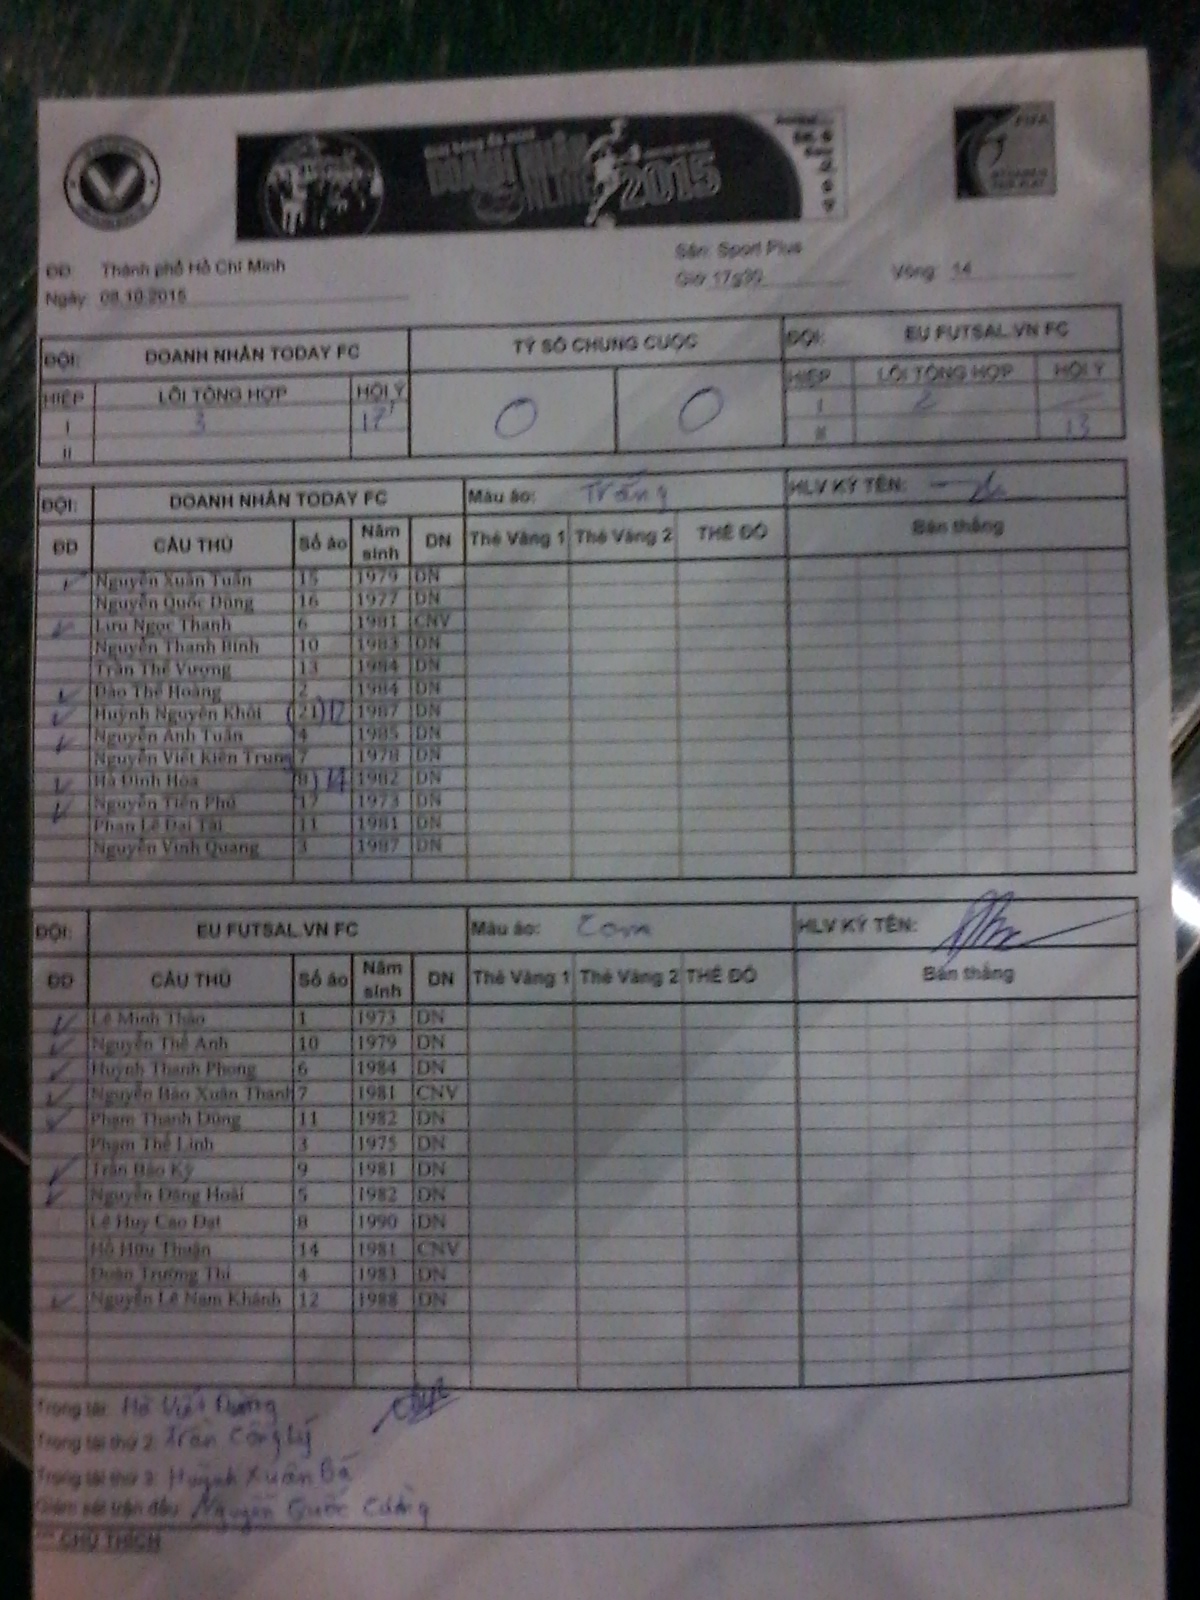 DOANH NHÂN
ONLINE 2015
FIFA
ĐĐ: Thành phố Hồ Chí Minh
Sân: Sport Plus
Ngày: 09.10.2015
Giờ 17g30
Vòng: 14
ĐỘI: DOANH NHÂN TODAY FC TỶ SỐ CHUNG CUỘC ĐỘI: EU FUTSAL.VN FC
HIỆP LỖI TỔNG HỢP HỘI Ý 0 0 HIỆP LỖI TỔNG HỢP HỘI Ý
I 3 17' I 2
II II 13
ĐỘI: DOANH NHÂN TODAY FC Màu áo: Trắng HLV KÝ TÊN:
ĐD CẦU THỦ Số áo Năm sinh DN Thẻ Vàng 1 Thẻ Vàng 2 THẺ ĐỎ Bàn thắng
Nguyễn Xuân Tuấn 15 1979 DN
Nguyễn Quốc Dũng 16 1977 DN
Lưu Ngọc Thanh 6 1981 CNV
Nguyễn Thanh Bình 10 1983 DN
Trần Thế Vượng 13 1984 DN
Đào Thế Hoàng 2 1984 DN
Huỳnh Nguyên Khôi (21) 17 1987 DN
Nguyễn Anh Tuấn 4 1985 DN
Nguyễn Viết Kiên Trung 7 1978 DN
Hà Đình Hòa (8) 14 1982 DN
Nguyễn Tiến Phú 17 1973 DN
Phan Lê Đại Tài 11 1981 DN
Nguyễn Vinh Quang 3 1987 DN
ĐỘI: EU FUTSAL.VN FC Màu áo: Cam HLV KÝ TÊN:
ĐD CẦU THỦ Số áo Năm sinh DN Thẻ Vàng 1 Thẻ Vàng 2 THẺ ĐỎ Bàn thắng
Lê Minh Thảo 1 1973 DN
Nguyễn Thế Anh 10 1979 DN
Huỳnh Thanh Phong 6 1984 DN
Nguyễn Bảo Xuân Thanh 7 1981 CNV
Phạm Thanh Dũng 11 1982 DN
Phạm Thế Linh 3 1975 DN
Trần Bảo Kỳ 9 1981 DN
Nguyễn Đăng Hoài 5 1982 DN
Lê Huy Cao Đạt 8 1990 DN
Hồ Hữu Thuận 14 1981 CNV
Đoàn Trường Thi 4 1983 DN
Nguyễn Lê Nam Khánh 12 1988 DN
Trọng tài: Hồ Viết Dường
Trọng tài thứ 2: Trần Công Lý
Trọng tài thứ 3: Huỳnh Xuân Bá
Giám sát trận đấu: Nguyễn Quốc Cường
*** CHÚ THÍCH